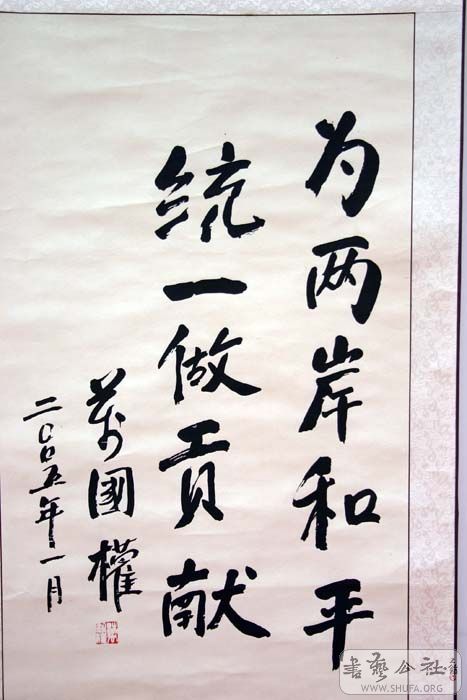 为两岸和平
统一做贡献
萬國權
二〇〇五年一月
書藝公社
WWW.SHUFA.ORG